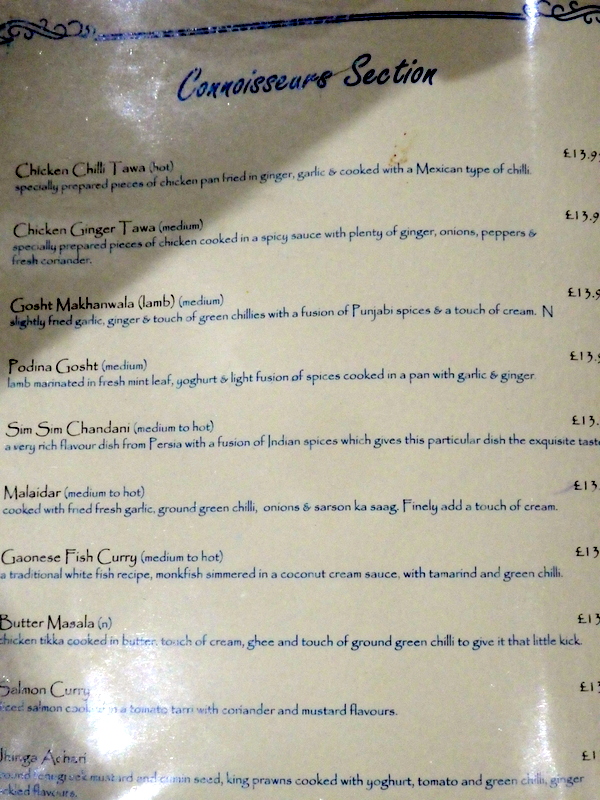 Connoisseurs Section
Chicken Chilli Tawa (hot) £13.9
specially prepared pieces of chicken pan fried in ginger, garlic & cooked with a Mexican type of chilli.
Chicken Ginger Tawa (medium) £13.9
specially prepared pieces of chicken cooked in a spicy sauce with plenty of ginger, onions, peppers &
fresh coriander.
Gosht Makhanwala (lamb) (medium) £13.9
slightly fried garlic, ginger & touch of green chillies with a fusion of Punjabi spices & a touch of cream. N
Podina Gosht (medium) £13.9
lamb marinated in fresh mint leaf, yoghurt & light fusion of spices cooked in a pan with garlic & ginger.
Sim Sim Chandani (medium to hot) £13.
a very rich flavour dish from Persia with a fusion of Indian spices which gives this particular dish the exquisite taste
Malaidar (medium to hot) £13.
cooked with fried fresh garlic, ground green chilli, onions & sarson ka saag. Finely add a touch of cream.
Gaonese Fish Curry (medium to hot) £13
a traditional white fish recipe, monkfish simmered in a coconut cream sauce, with tamarind and green chilli.
Butter Masala (n) £13
chicken tikka cooked in butter, touch of cream, ghee and touch of ground green chilli to give it that little kick.
Salmon Curry £13
salmon cooked in a tomato tarri with coriander and mustard flavours.
Achari £1
mustard and cumin seed, king prawns cooked with yoghurt, tomato and green chilli, ginger
flavours.